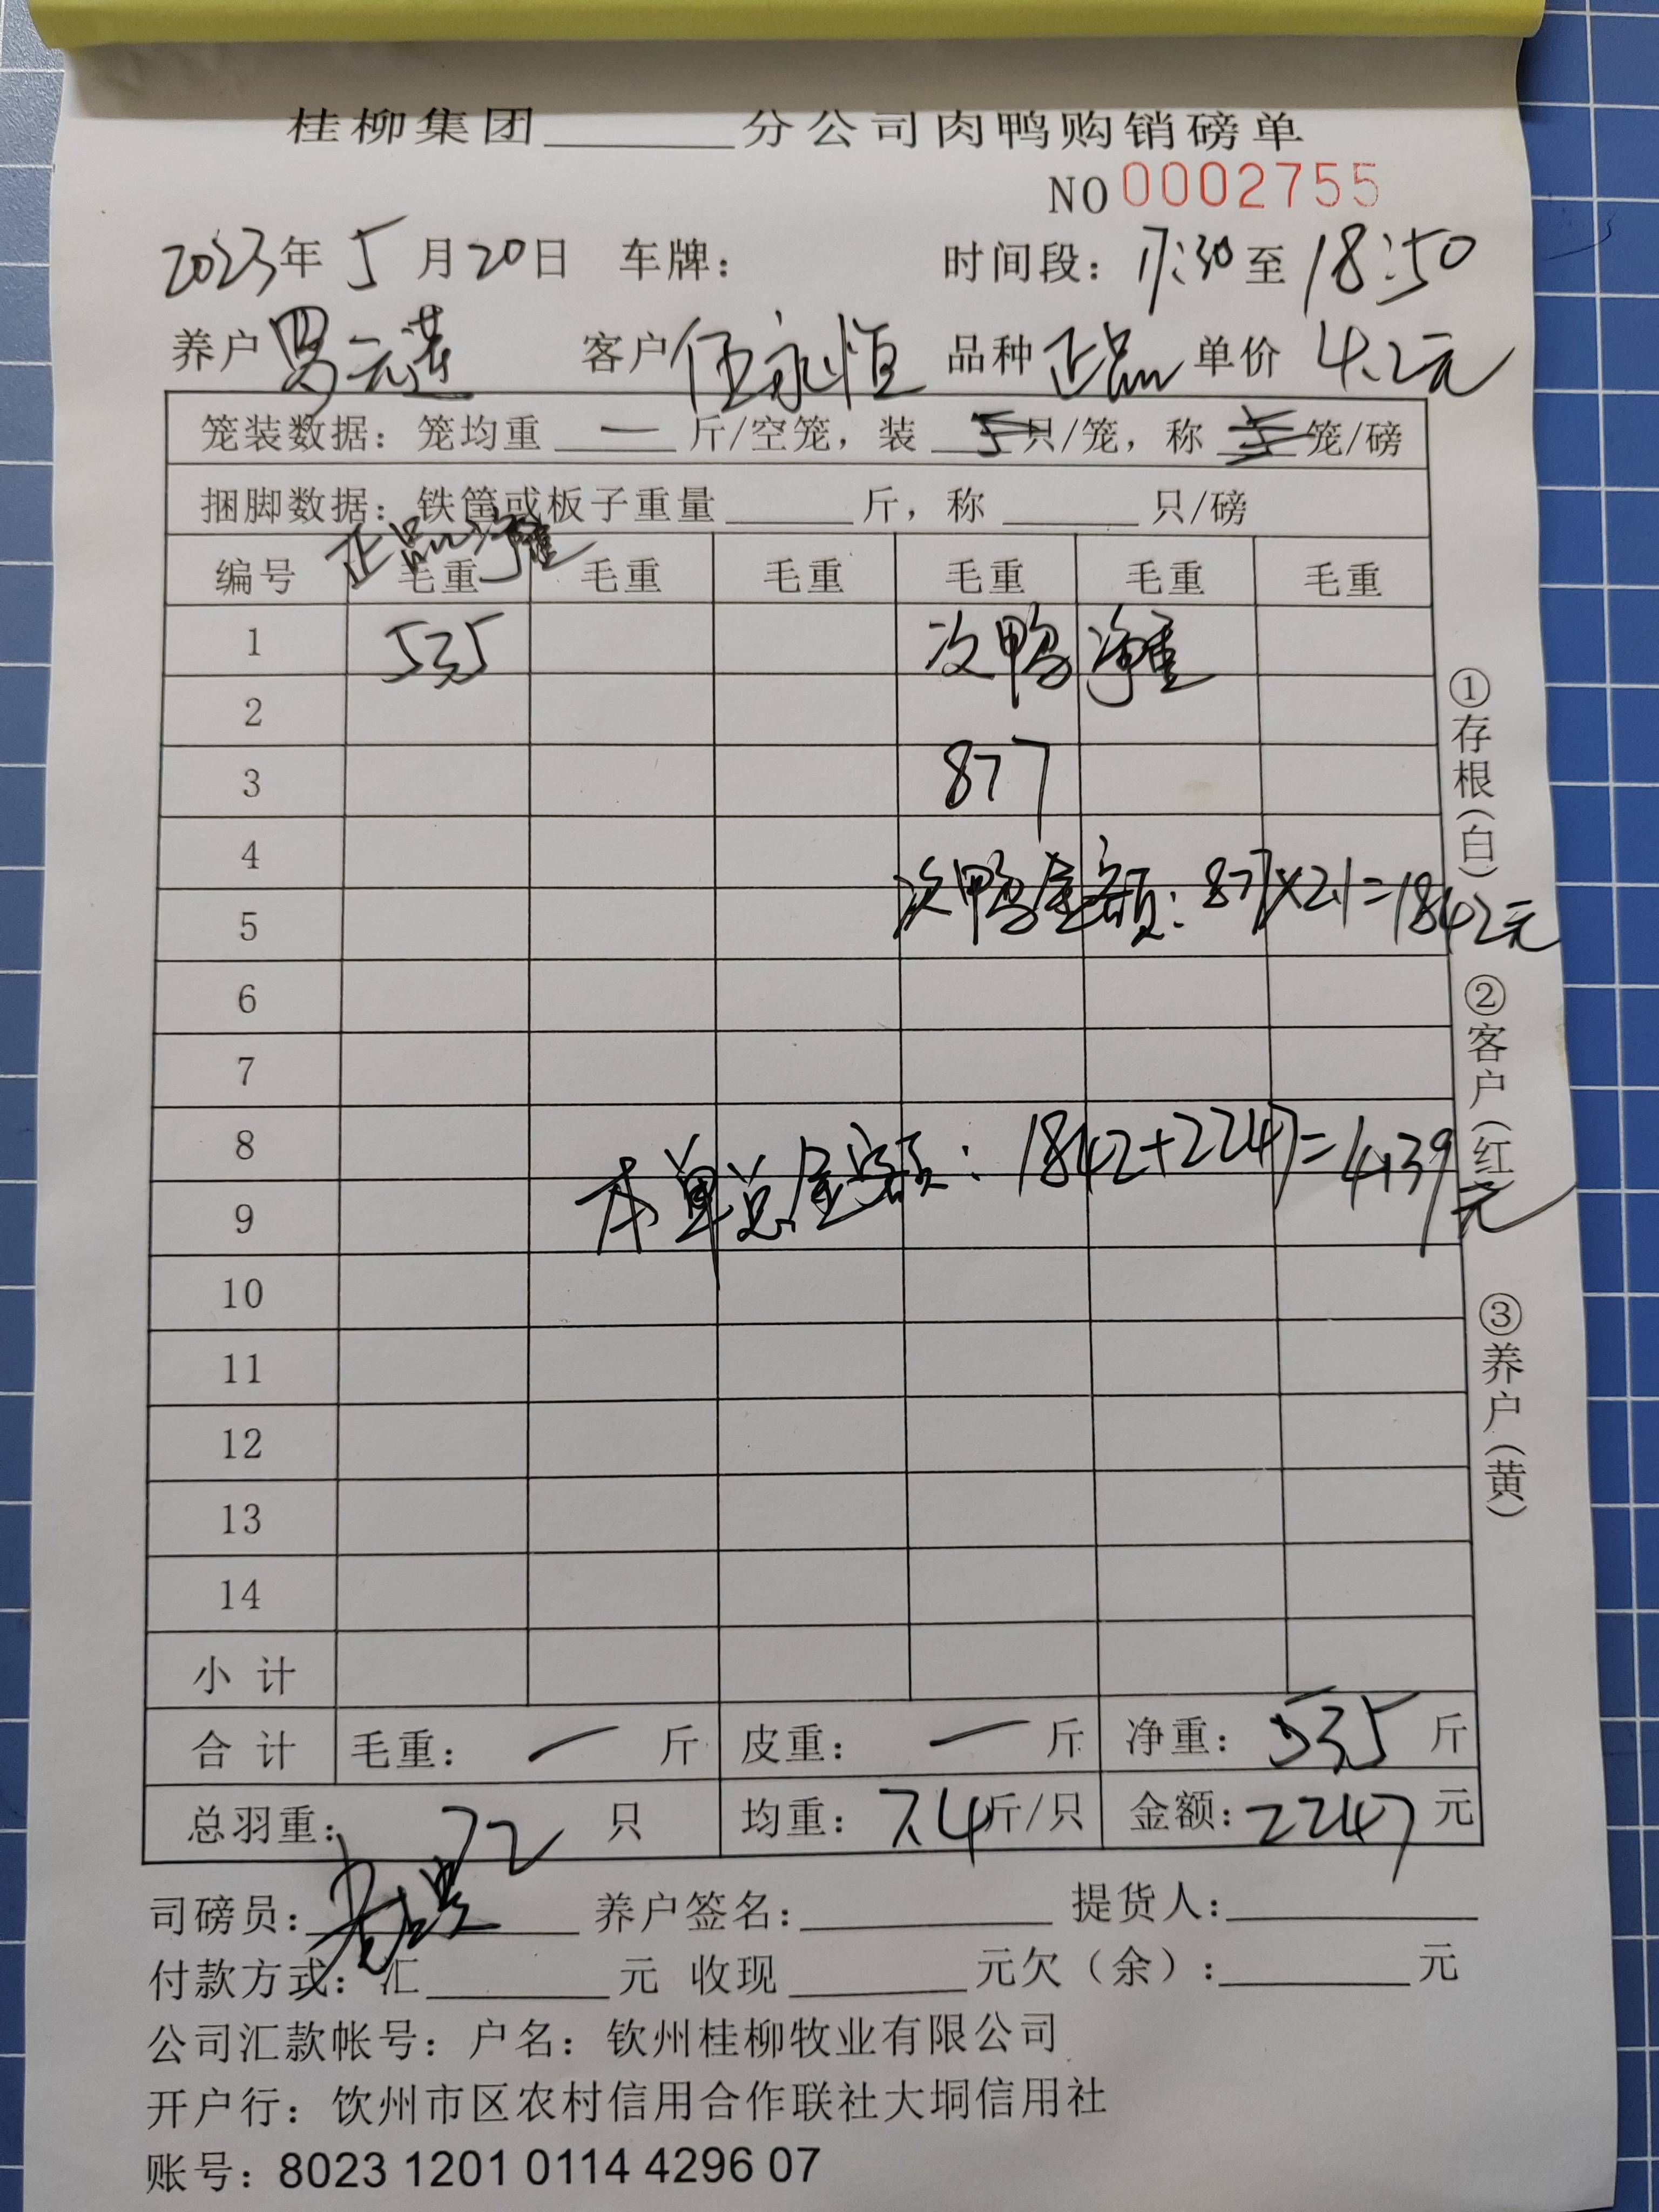 桂柳集团______分公司肉鸭购销磅单
NO 0002755
2023年 5月20日 车牌： 时间段：17:30至18:50
养户 罗元 客户 伍永恒 品种 正品 单价 4.2元
笼装数据：笼均重 一 斤/空笼，装 5 只/笼，称 5 笼/磅
捆脚数据：铁筐或板子重量______斤，称______只/磅
正品净重
编号 毛重 毛重 毛重 毛重 毛重 毛重
1 535 次鸭净重
2
3 877
4
次鸭金额：877×2.1=1842元
5
6
7
8
本单总金额：1842+2247=4139元
9
10
11
12
13
14
小计
合计 毛重：一斤 皮重：一斤 净重：535斤
总羽重：72只 均重：7.4斤/只 金额：2247元
司磅员： 养户签名： 提货人：
付款方式：汇______元 收现______元欠（余）：______元
公司汇款帐号：户名：钦州桂柳牧业有限公司
开户行：钦州市区农村信用合作联社大垌信用社
账号：8023 1201 0114 4296 07
①存根（白）
②客户（红）
③养户（黄）